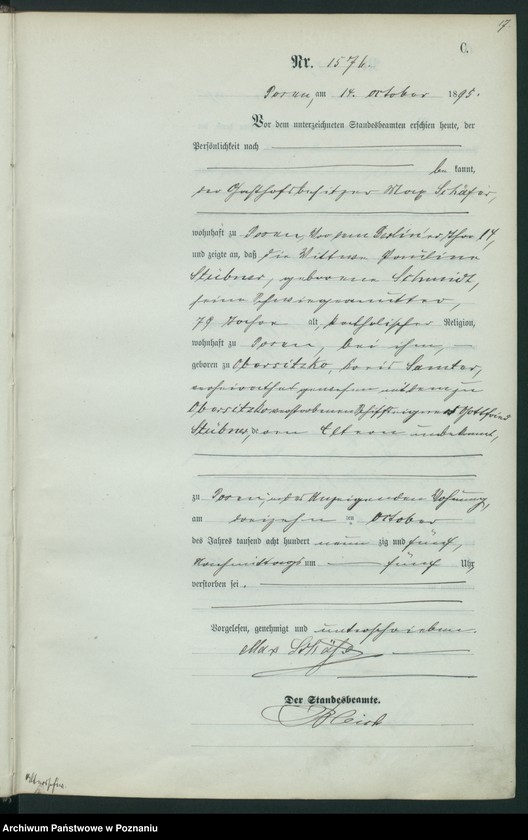 17
C.
Nr. 1576.
Posen, am 14. October 1895.
Vor dem unterzeichneten Standesbeamten erschien heute, der
Persönlichkeit nach
be kannt,
der Gasthofsbesitzer Max Schäfer,
wohnhaft zu Posen, vor dem Berliner Thor 14,
und zeigte an, daß die Wittwe Pauline
Stübner, geborene Schmidt,
seine Schwiegermutter,
79 Jahre alt, katholischer Religion,
wohnhaft zu Posen, bei ihm,
geboren zu Obersitzko, Kreis Samter,
verheirathet gewesen mit dem zu
Obersitzko verstorbenen Schiffseigner Gottfried
Stübner, deren Eltern unbekannt,
zu Posen, in des Anzeigenden Wohnung,
am dreizehn ten October
des Jahres tausend acht hundert neun zig und fünf,
Nachmittags um fünf Uhr
verstorben sei.
Vorgelesen, genehmigt und unterschrieben.
Max Schäfer
Der Standesbeamte.
Archiwum Państwowe w Poznaniu